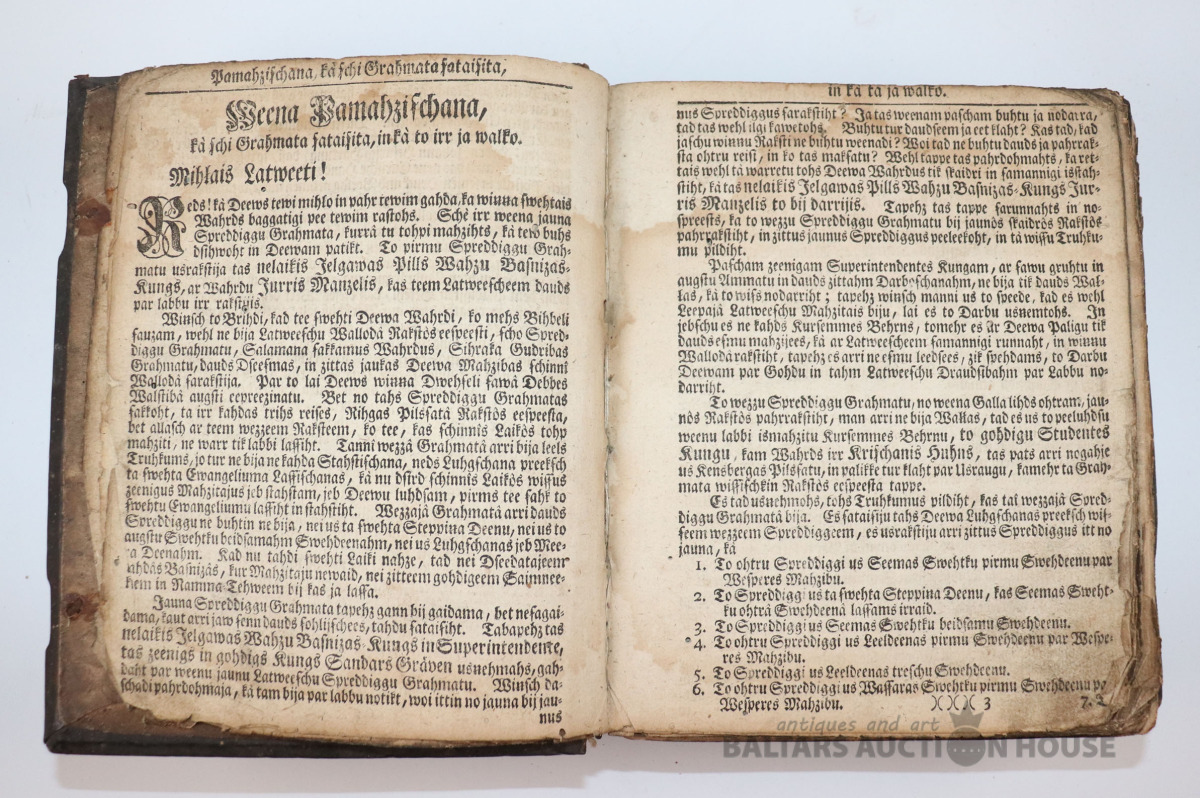 Pamahzischana, kà schi Grahmata sataisita,
Weena Pamahzischana,
kà schi Grahmata sataisita, in kà to irr ja walko.
Mihlais Latweeti!
Reds! kà Deews tewi mihlo in pahr tewim gahda, ka winna swehtais
Wahrds baggatigi pee tewim rastohs. Schè irr weena jauna
Spreddiggu Grahmata, kurrà tu tohpi mahzihts, kà tew buhs
dsihwoht in Deewam patikt. To pirmu Spreddiggu Grah-
matu usrakstija tas nelaikis Jelgawas Pills Wahzu Basnizas-
Kungs, ar Wahrdu Jurris Manzelis, kas teem Latweescheem dauds
par labbu irr rakstijis.
Winsch to Brihdi, kad tee swehti Deewa Wahrdi, ko mehs Bihbeli
sauzam, wehl ne bija Latweeschu Wallodà Rakstòs eespeesti, scho Spred-
diggu Grahmatu, Salamana sakkamus Wahrdus, Sihraka Gudribas
Grahmatu, dauds Dseesmas, in zittas jaukas Deewa Mahzibas schinnì
Wallodà sarakstija. Par to lai Deews winna Dwehseli sawà Debbes
Walstibà augsti eepreezinatu. Bet no tahs Spreddiggu Grahmatas
sakkoht, ta irr kahdas trihs reises, Rihgas Pilssatà Rakstòs eespeesta,
bet allasch ar teem wezzeem Raksteem, ko tee, kas schinnìs Laikòs tohp
mahziti, ne warr tik labbi lassiht. Tannì wezzà Grahmatà arri bija leels
Truhkums, jo tur ne bija ne kahda Stahstischana, neds Luhgschana preeksch
ta swehta Ewangeliuma Lassischanas, kà nu dsird schinnìs Laikòs wissus
zeenigus Mahzitajus jeb stahstam, jeb Deewu luhdsam, pirms tee sahk to
swehtu Ewangeliumu lassiht in stahstiht. Wezzajà Grahmatà arri dauds
Spreddiggu ne buhtin ne bija, nei us ta swehta Steppina Deenu, nei us to
augstu Swehtku beidsamahm Swehdeenahm, nei us Luhgschanas jeb Mee-
ra Deenahm. Kad nu tahdi swehti Laiki nahze, tad nei Dseedatajeem
tahdàs Basnizàs, kur Mahzitaju newaid, nei zitteem gohdigeem Saimnee-
keem in Namma-Tehweem bij kas ja lassa.
Jauna Spreddiggu Grahmata tapehz gann bij gaidama, bet nesagai-
dama, kaut arri jaw senn dauds sohlijschees, tahdu sataisiht. Tabapehz tas
nelaikis Jelgawas Wahzu Basnizas-Kungs in Superintendente,
tas zeenigs in gohdigs Kungs Sandars Gräven usnehmahs, gah-
daht par weenu jaunu Latweeschu Spreddiggu Grahmatu. Winsch da-
schadi pahrdohmaja, kà tam bija par labbu notikt, woi ittin no jauna bij jau-
nus
in kà ta ja walko.
nus Spreddiggus sarakstiht? Ja tas weenam pascham buhtu ja nodarra,
tad tas wehl ilgi kawetohs. Buhtu tur daudseem ja eet klaht? Kas tad, kad
jaschu winnu Raksti ne buhtu weenadi? Woi tad ne buhtu dauds ja pahrrak-
sta ohtru reisi, in ko tas maksatu? Wehl tappe tas pahrdohmahts, ka ret-
tais wehl tà warretu tohs Deewa Wahrdus tik skaidri in samannigi isstah-
stiht, kà tas nelaikis Jelgawas Pills Wahzu Basnizas-Kungs Jur-
ris Manzelis to bij darrijis. Tapehz tas tappe sarunnahts in no-
spreests, ka to wezzu Spreddiggu Grahmatu bij jaunòs skaidròs Rakstòs
pahrrakstiht, in zittus jaunus Spreddiggus peeleekoht, in tà wissu Truhku-
mu pildiht.
Pascham zeenigam Superintendentes Kungam, ar sawu gruhtu in
augstu Ammatu in dauds zittahm Darboschanahm, ne bija tik dauds Wal-
las, kà to wiss nodarriht; tapehz winsch manni us to speede, kad es wehl
Leepajà Latweeschu Mahzitais biju, lai es to Darbu usnemtohs. In
jebschu es ne kahds Kursemmes Behrns, tomehr es ar Deewa Paligu tik
dauds esmu mahzijees, kà ar Latweescheem samannigi runnaht, in winnu
Wallodà rakstiht, tapehz es arri ne esmu leedsees, zik spehdams, to Darbu
Deewam par Gohdu in tahm Latweeschu Draudsibahm par Labbu no-
darriht.
To wezzu Spreddiggu Grahmatu, no weena Galla lihds ohtram, jau-
nòs Rakstòs pahrrakstiht, man arri ne bija Wallas, tad es us to peeluhdsu
weenu labbi ismahzitu Kursemmes Behrnu, to gohdigu Studentes
Kungu, kam Wahrds irr Krischanis Huhns, tas pats arri nogahje
us Kensbergas Pilssatu, in palikke tur klaht par Usraugu, kamehr ta Grah-
mata wissischkin Rakstòs eespeesta tappe.
Es tad usnehmohs, tohs Truhkumus pildiht, kas tai wezzajà Spred-
diggu Grahmatà bija. Es sataisiju tahs Deewa Luhgschanas preeksch wis-
seem wezzeem Spreddiggeem, es usrakstiju arri zittus Spreddiggus itt no
jauna, kà
1. To ohtru Spreddiggi us Seemas Swehtku pirmu Swehdeenu par
Wesperes Mahzibu.
2. To Spreddiggi us ta swehta Steppina Deenu, kas Seemas Sweht-
ku ohtrà Swehdeenà lassams irraid.
3. To Spreddiggi us Seemas Swehtku beidsamu Swehdeenu.
4. To ohtru Spreddiggi us Leeldeenas pirmu Swehdeenu par Wespe-
res Mahzibu.
5. To Spreddiggi us Leeldeenas treschu Swehdeenu.
6. To ohtru Spreddiggi us Wassaras Swehtku pirmu Swehdeenu pa
Wesperes Mahzibu. )( )( )( 3 7. T
antiques and art
BALTARS AUCTION HOUSE